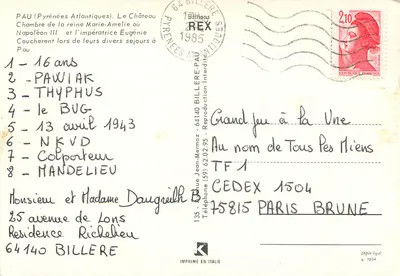 PAU (Pyrénées Atlantiques). Le Château
Chambre de la reine Marie-Amélie où
Napoléon III et l'impératrice Eugénie
Couchèrent lors de leurs divers séjours à
Pau
1 - 16 ans
2 - PAWIAK
3 - THYPHUS
4 - le BUG
5 - 13 avril 1943
6 - NKVD
7 - Colporteur
8 - MANDELIEU
Monsieur et Madame Daugreilh B
25 avenue de Lons
Residence Richelieu
64140 BILLERE
135 - Jean-Mermoz - 64140 BILLERE-PAU
59.62.02.95 - Reproduction Interdite
REX
64 BILLERE
1985
PYRENEES ATLANTIQUES
2,10
Grand Jeu à la Une
Au nom de Tous les Miens
TF1
CEDEX 1504
75815 PARIS BRUNE
K
IMPRIMÉ EN ITALIE
Dépôt légal